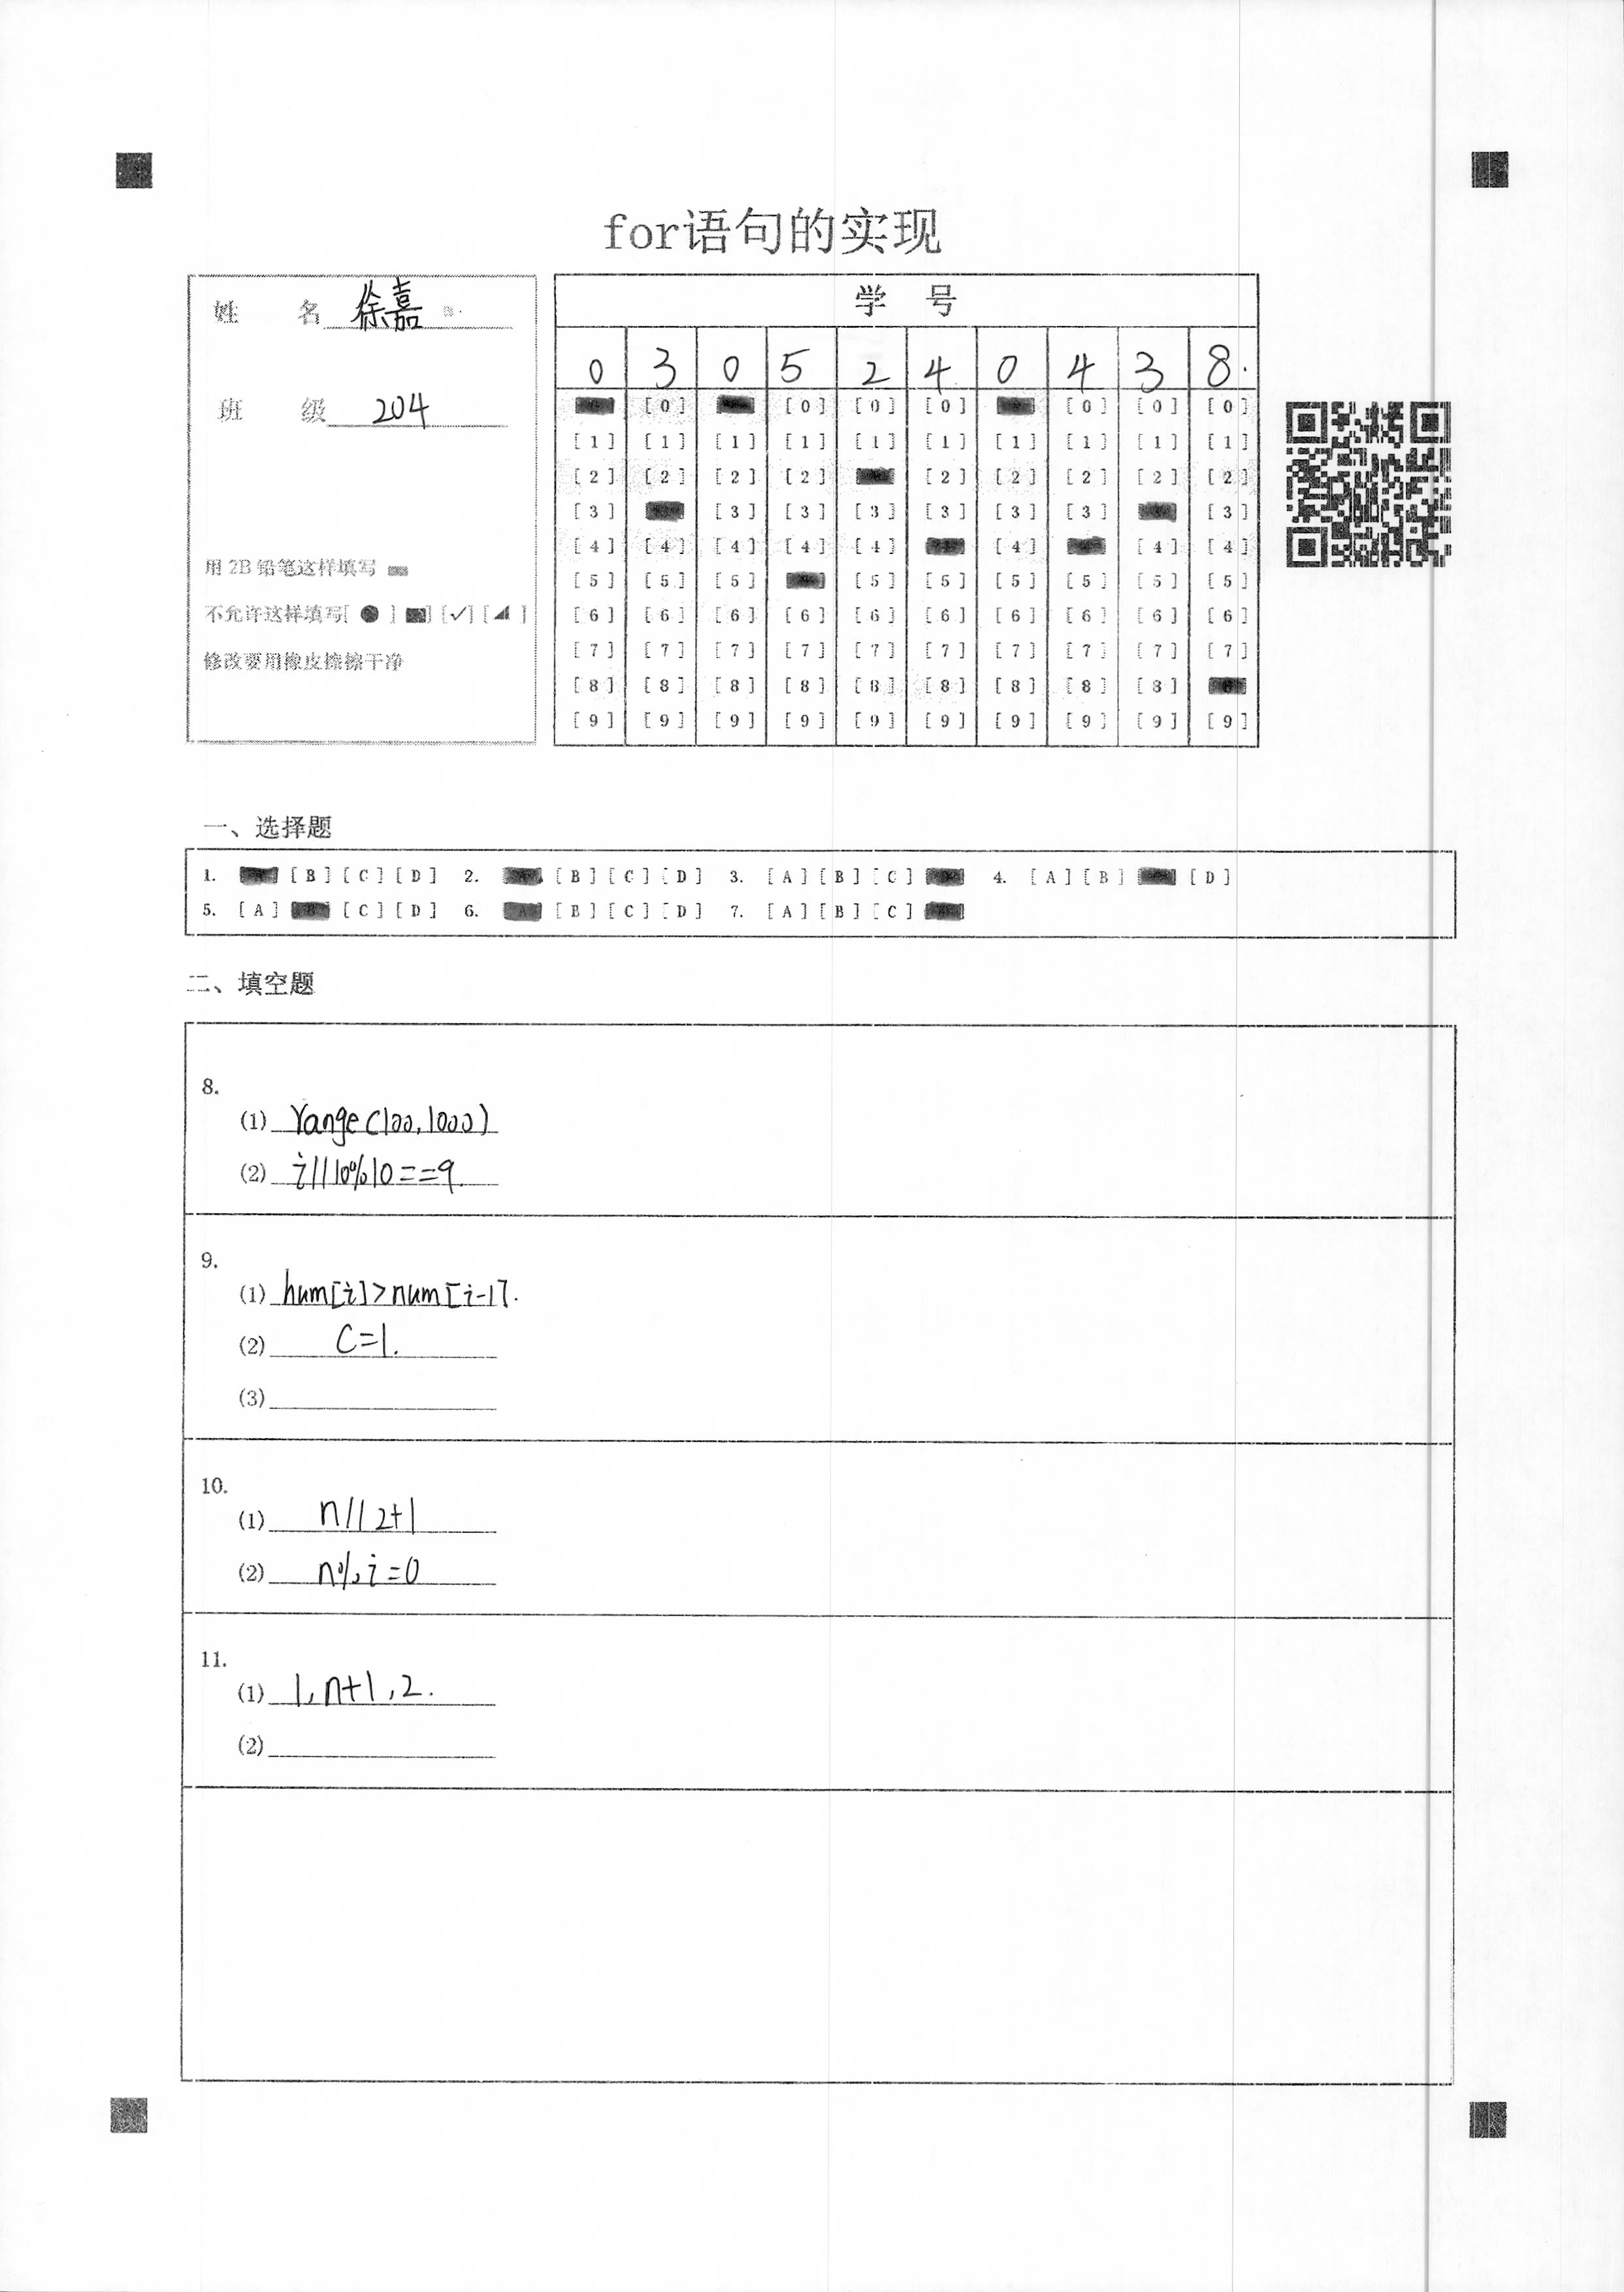 for语句的实现
姓 名 徐嘉
班 级 204
用 2B 铅笔这样填写
不允许这样填写[ ● ] [■] [✓] [◢ ]
修改要用橡皮擦擦干净
学 号
0 3 0 5 2 4 0 4 3 8.
[0] [0] [0] [0] [0] [0] [0]
[1] [1] [1] [1] [1] [1] [1] [1] [1] [1]
[2] [2] [2] [2] [2] [2] [2] [2] [2]
[3] [3] [3] [3] [3] [3] [3] [3]
[4] [4] [4] [4] [4] [4] [4] [4]
[5] [5] [5] [5] [5] [5] [5] [5] [5]
[6] [6] [6] [6] [6] [6] [6] [6] [6] [6]
[7] [7] [7] [7] [7] [7] [7] [7] [7] [7]
[8] [8] [8] [8] [8] [8] [8] [8] [8]
[9] [9] [9] [9] [9] [9] [9] [9] [9] [9]
一、选择题
1. [B] [C] [D] 2. [B] [C] [D] 3. [A] [B] [C] 4. [A] [B] [D]
5. [A] [C] [D] 6. [A] [B] [C] [D] 7. [A] [B] [C]
二、填空题
8.
(1) range(100,1000)
(2) i//10%10==9.
9.
(1) num[i]>num[i-1].
(2) C=1.
(3)
10.
(1) n//2+1
(2) n%i=0
11.
(1) 1,n+1,2.
(2)